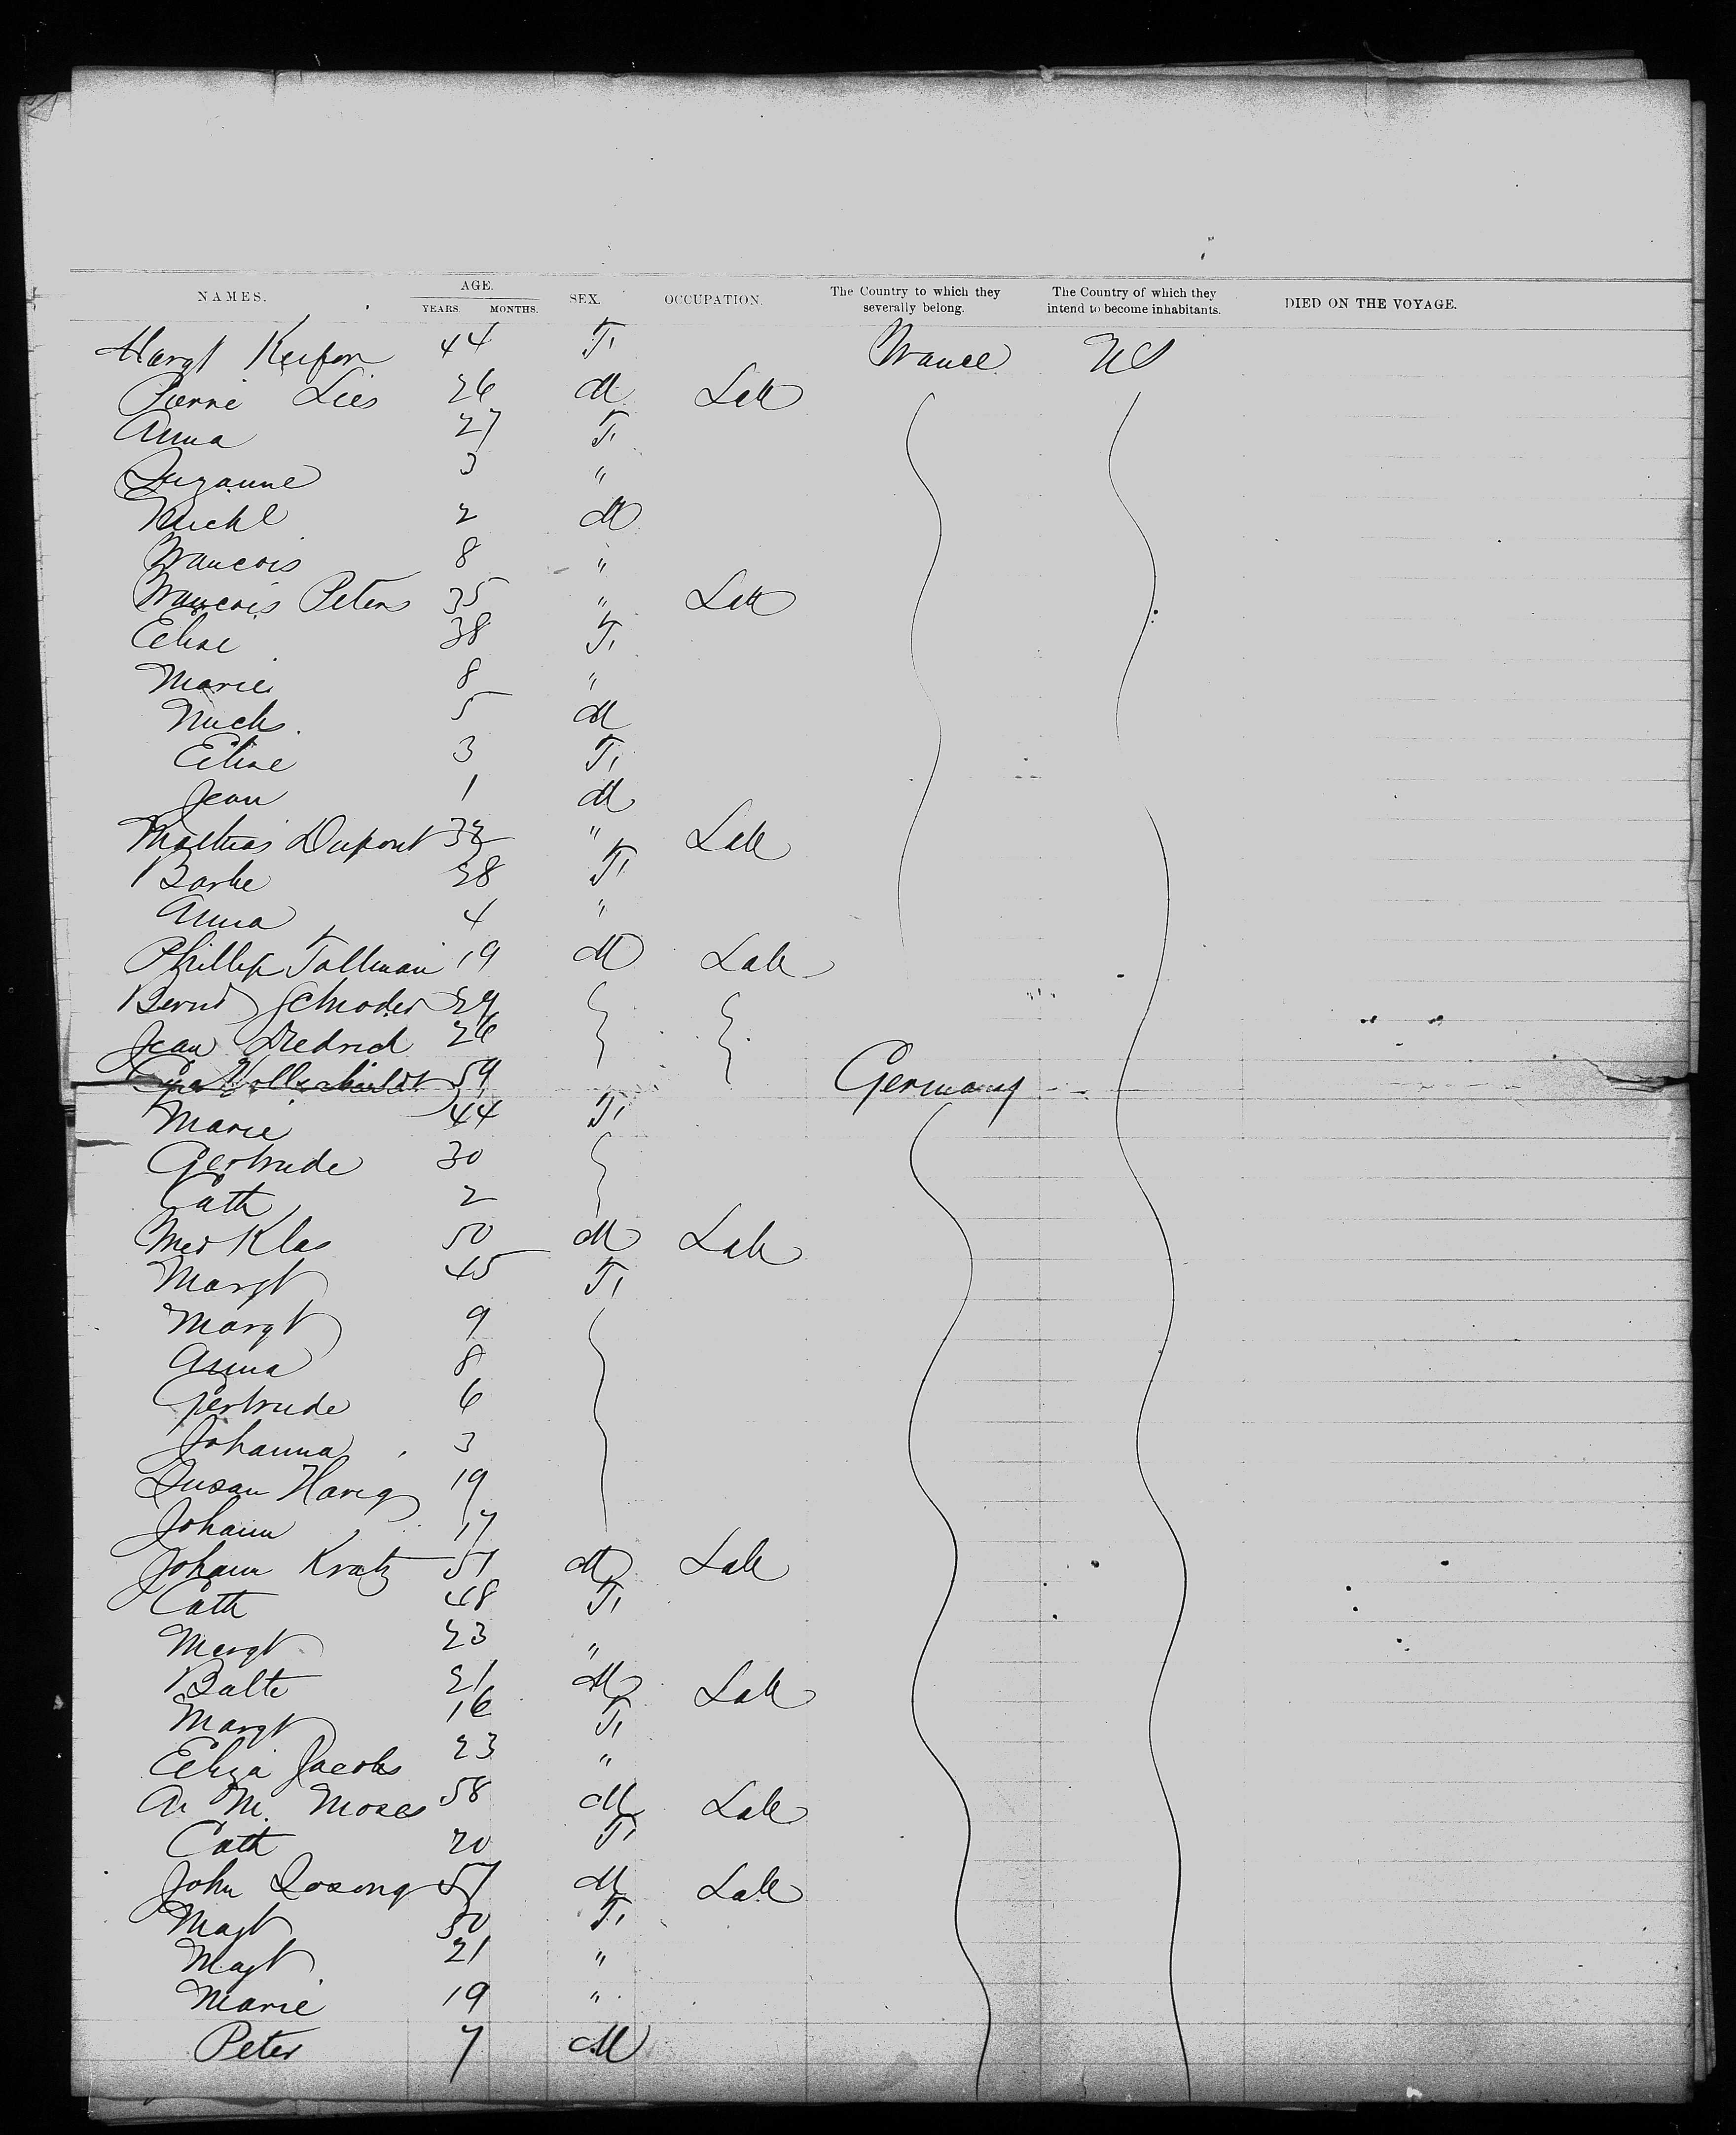 NAMES. AGE. YEARS. MONTHS. SEX. OCCUPATION. The Country to which they severally belong. The Country of which they intend to become inhabitants. DIED ON THE VOYAGE.
Margt Keifer 44 F. France US
Pierre Lies 26 M Lab
Anna 27 F.
Suzanne 3 "
Michl 2 M
Francois 8 "
Francois Peters 35 " Lab
Elise 38 F.
Marie 8 "
Nichs. 5 M
Elise 3 F.
Jean 1 M
Mathias Dupont 32 " Lab
Barbe 28 F.
Anna 4 "
Phillip Tallman 19 M Lab
Bernd Schroder 29
Jean Diedrich 26
59 Germany
Marie 44 F.
Gertrude 30
Cath 2
Klas 50 M Lab
Margt 45 F.
Margt 9
Anna 8
Gertrude 6
Johanna 3
Susan Harig 19
Johann 17
Johann Kratz 51 M Lab
Cath 48 F.
Margt 23 "
Balte 21 M Lab
Margt 16 F.
Eliza Jacobs 23 "
A. M. Moses 58 M Lab
Cath 20 F.
John Losong 57 M Lab
Magt 50 F.
Magt 21 "
Marie 19 "
Peter 7 M